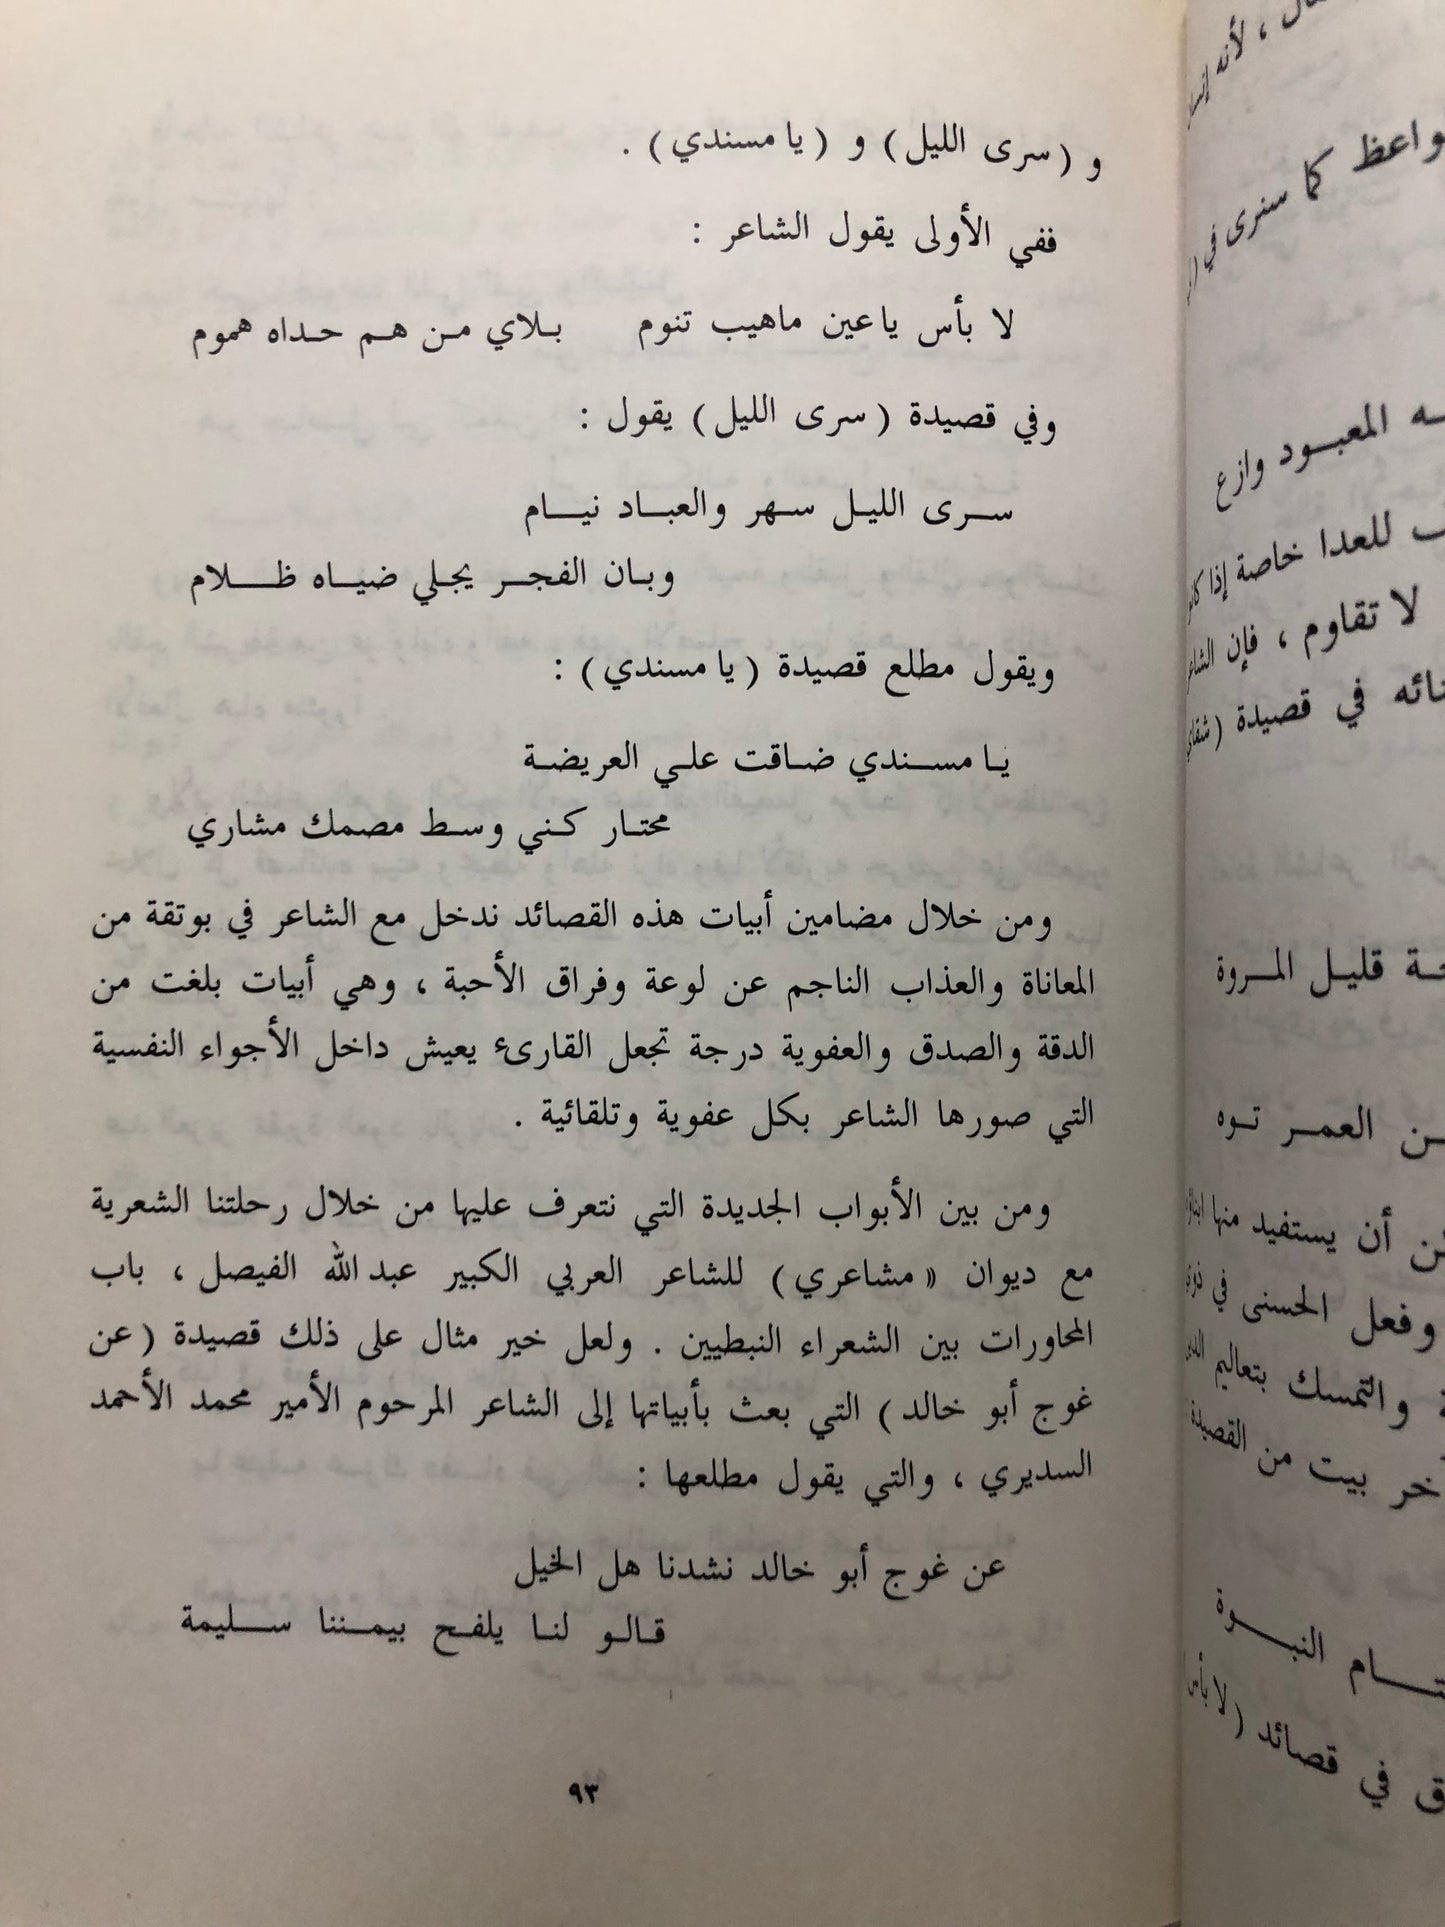 و ( سرى الليل ) و ( يا مسندي ) .
ففي الأولى يقول الشاعر :
لا بأس ياعين ماهيب تنوم بـلاي مـن هـم حـداه هموم
وفي قصيدة ( سرى الليل ) يقول :
سـرى الليـل سـهر والعبـاد نيـام
وبـان الفجـر يجـلي ضيـاه ظـلام
ويقول مطلع قصيدة ( يا مسندي ) :
يـا مسـندي ضـاقت علـي العريضـة
محتـار كـني وسـط مصمك مشاري
ومن خلال مضامين أبيات هذه القصائد ندخل مع الشاعر في بوتقة من
المعاناة والعذاب الناجم عن لوعة وفراق الأحبة ، وهي أبيات بلغت من
الدقة والصدق والعفوية درجة تجعل القارىء يعيش داخل الأجواء النفسية
التي صورها الشاعر بكل عفوية وتلقائية .
ومن بين الأبواب الجديدة التي نتعرف عليها من خلال رحلتنا الشعرية
مع ديوان « مشاعري ) للشاعر العربي الكبير عبد الله الفيصل ، باب
المحاورات بين الشعراء النبطيين . ولعل خير مثال على ذلك قصيدة ( عن
غوج أبو خالد ) التي بعث بأبياتها إلى الشاعر المرحوم الأمير محمد الأحمد
السديري ، والتي يقول مطلعها :
عن غوج أبو خالد نشدنا هل الخيل
قـالـو لنـا يلفـح بيمـننا سـليمة
٩٣
، لأنه
واعظ كما سنرى في
المعبـود وازع
للعدا خاصة إذا
لا تقاوم ، فإن
في قصيدة (
قليـل المـروة
العمـر تـوه
أن يستفيد منها
وفعل الحسنى في
والتمسك بتعاليم
بيت من القصيدة
النبـوة
في قصائد ( لا بأس